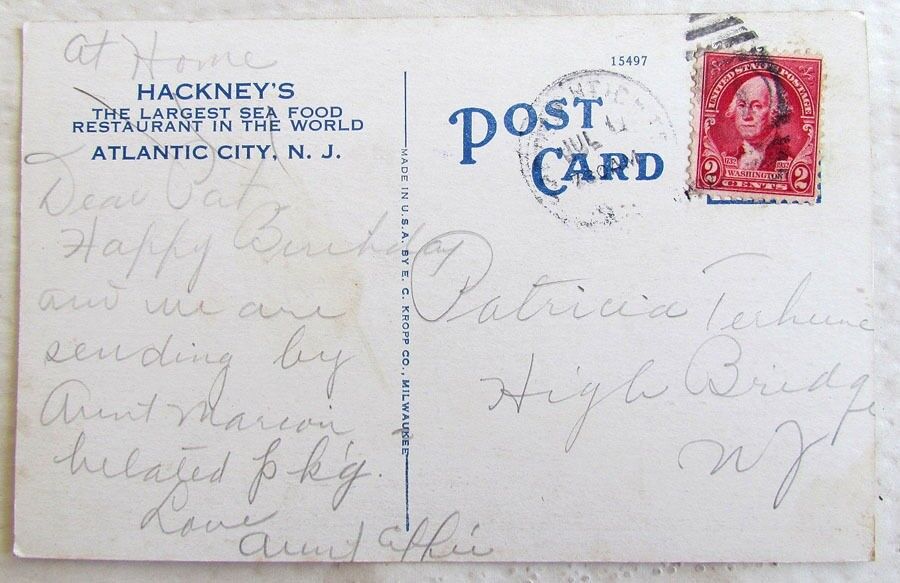 At Home
HACKNEY'S
THE LARGEST SEA FOOD
RESTAURANT IN THE WORLD
ATLANTIC CITY, N. J.
Dear Pat
Happy Birthday
and we are
sending by
Aunt Marion
belated pkg.
Love
Aunt Effie
MADE IN U.S.A. BY E. C. KROPP CO., MILWAUKEE
15497
POST
CARD
JUL
UNITED STATES POSTAGE
1732 1932
2 WASHINGTON 2
CENTS
Patricia Terhune
High Bridge
NJ